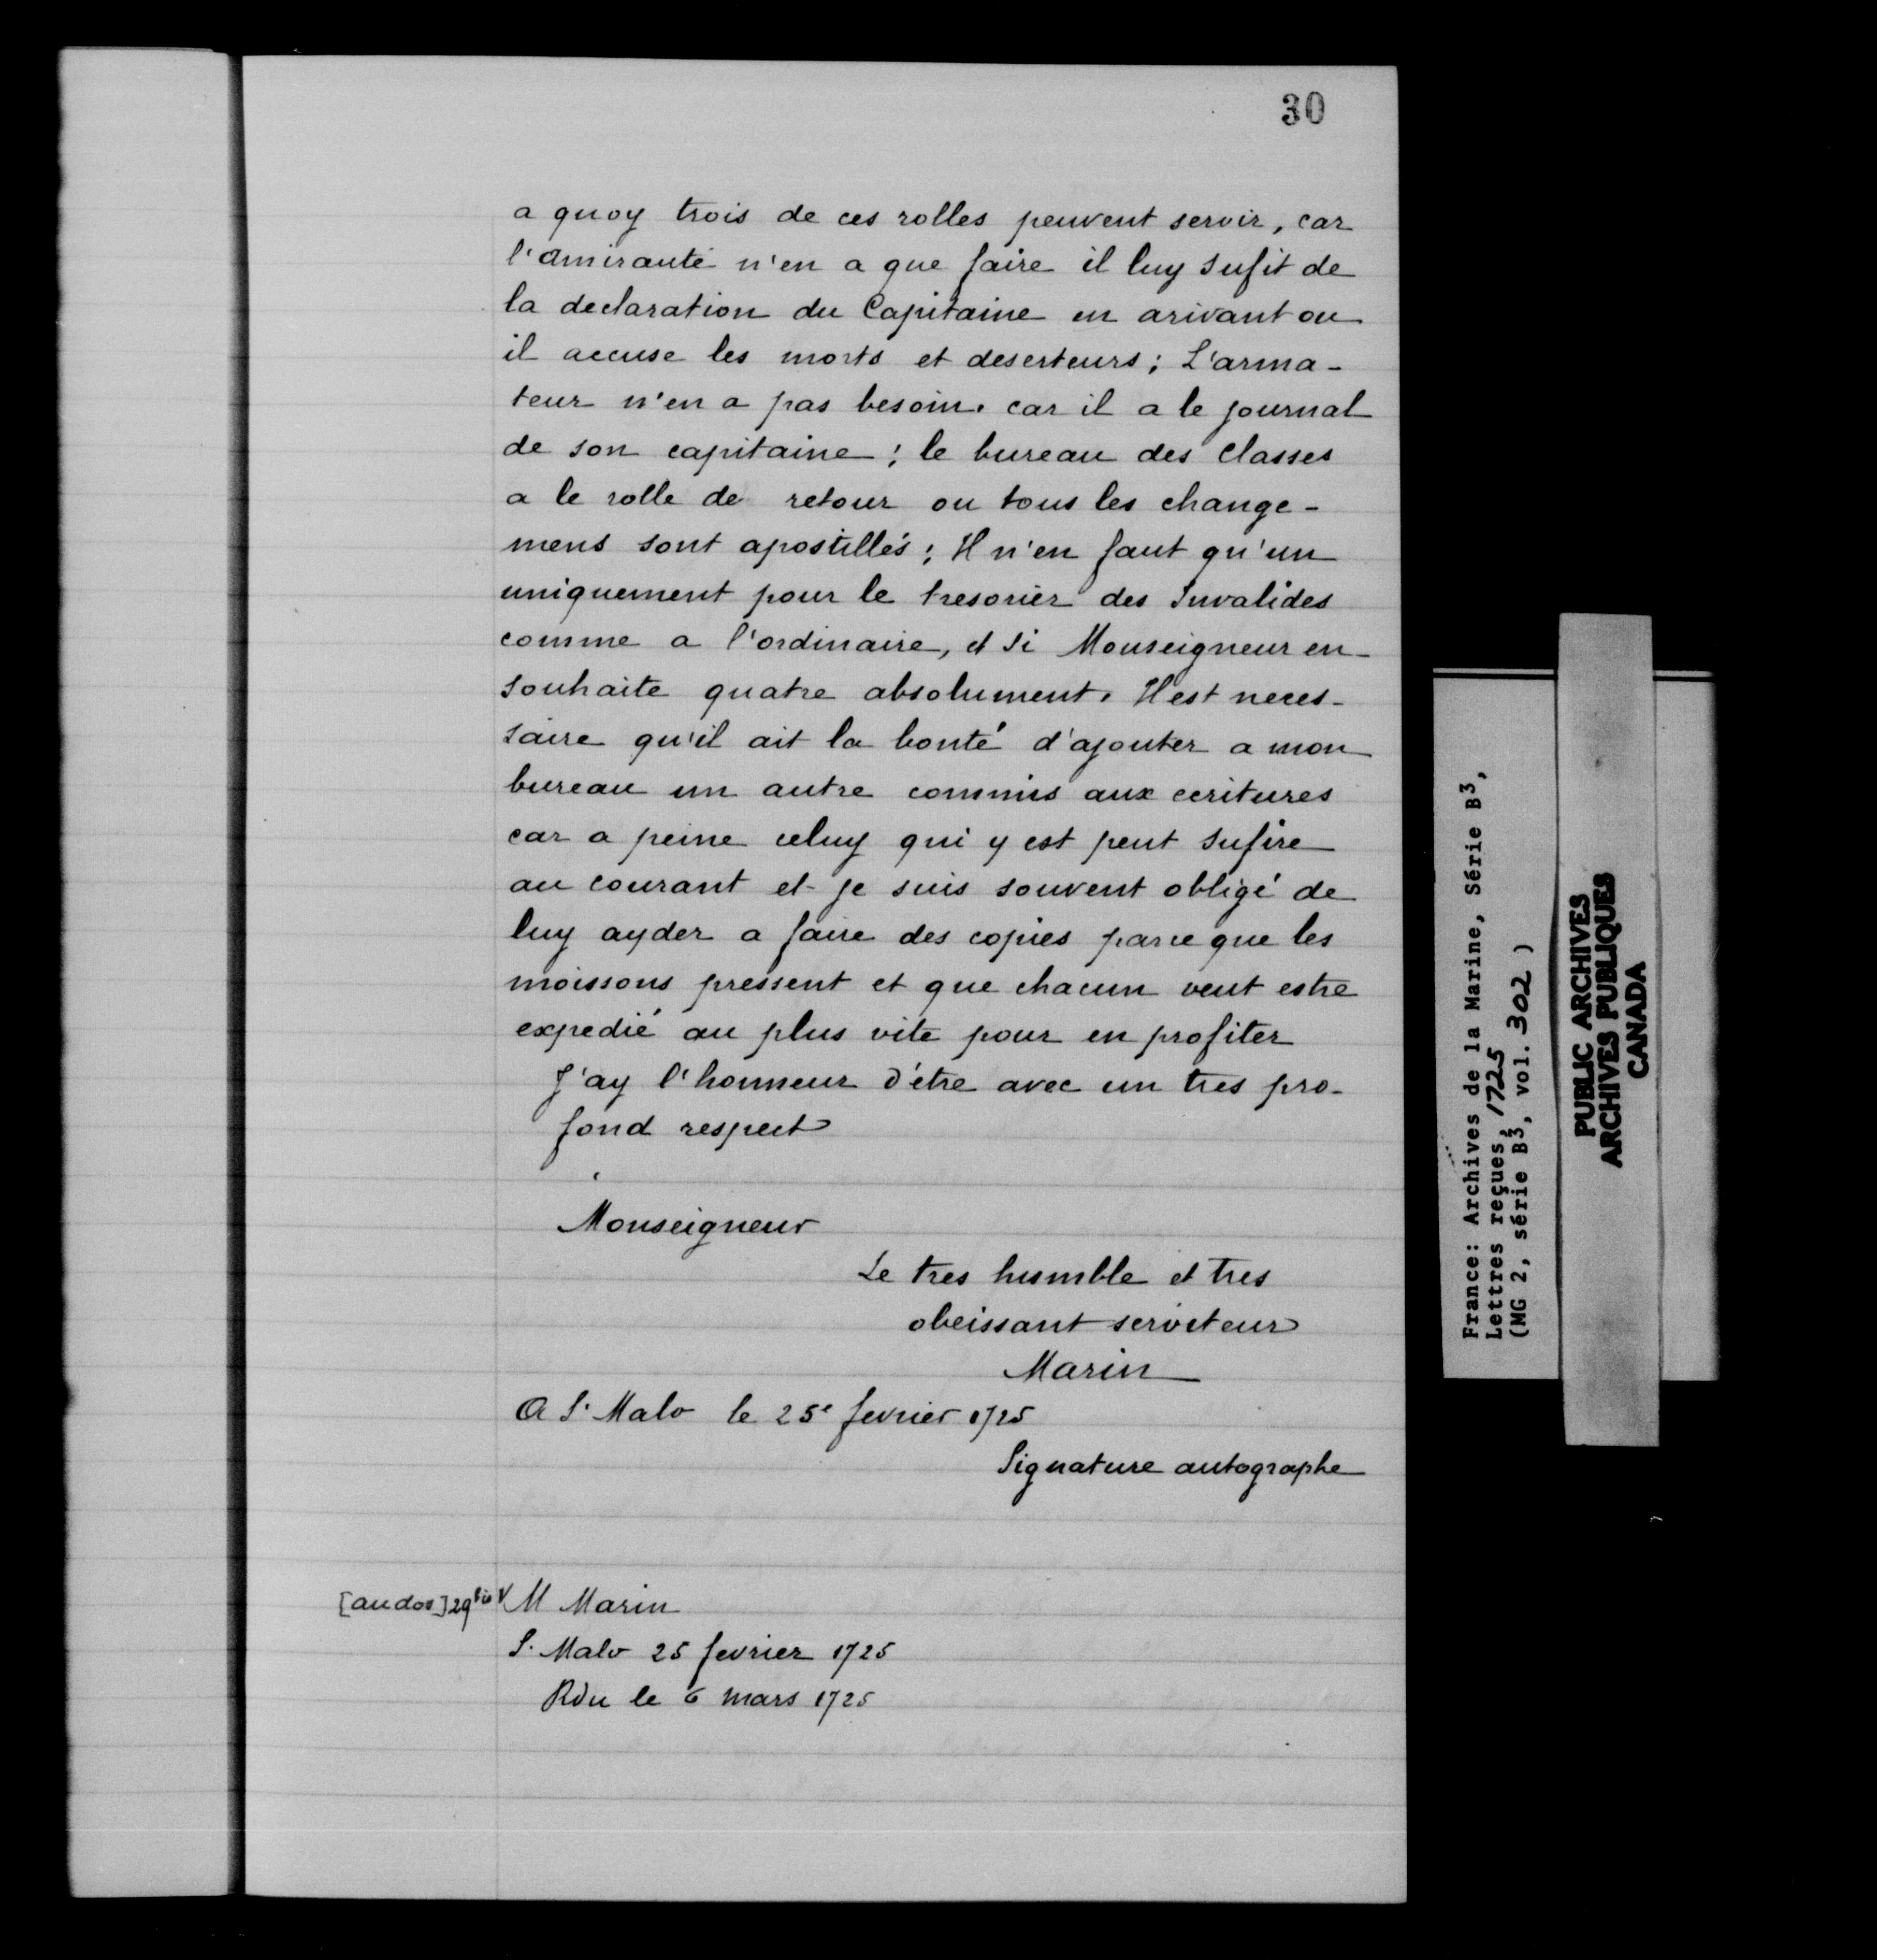 30
a quoy trois de ces rolles peuvent servir, car
l'amirauté n'en a que faire il luy sufit de
la declaration du Capitaine en arivant ou
il accuse les morts et deserteurs; L'arma-
teur n'en a pas besoin, car il a le journal
de son capitaine; le bureau des classes
a le rolle de retour ou tous les change-
mens sont apostillés; Il n'en faut qu'un
uniquement pour le tresorier des Invalides
comme a l'ordinaire, et si Monseigneur en
souhaite quatre absolument, Il est neces-
saire qu'il ait la bonté d'ajouter a mon
bureau un autre commis aux ecritures
car a peine celuy qui y est peut sufire
au courant et je suis souvent obligé de
luy ayder a faire des copies parce que les
moissons pressent et que chacun veut estre
expedié au plus vite pour en profiter
J'ay l'honneur d'être avec un tres pro-
fond respect
Monseigneur
Le tres humble et tres
obeissant serviteur
Marin
A S. Malo le 25e fevrier 1725
Signature autographe
[au dos] 29 bis V M Marin
S. Malo 25 fevrier 1725
Rdu le 6 mars 1725
France: Archives de la Marine, Série B3,
Lettres reçues, 1725
(MG 2, série B3, vol. 302)
PUBLIC ARCHIVES
ARCHIVES PUBLIQUES
CANADA